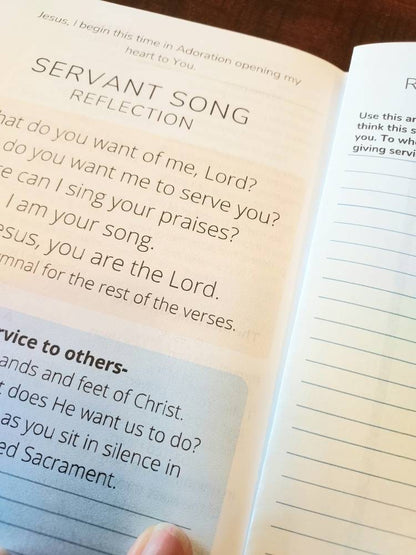 Jesus, I begin this time in Adoration opening my
heart to You.
SERVANT SONG
REFLECTION
hat do you want of me, Lord?
do you want me to serve you?
re can I sing your praises?
I am your song.
esus, you are the Lord.
ymnal for the rest of the verses.
rvice to others-
ands and feet of Christ.
t does He want us to do?
as you sit in silence in
ed Sacrament.
R
Use this ar
think this s
you. To wh
giving servi